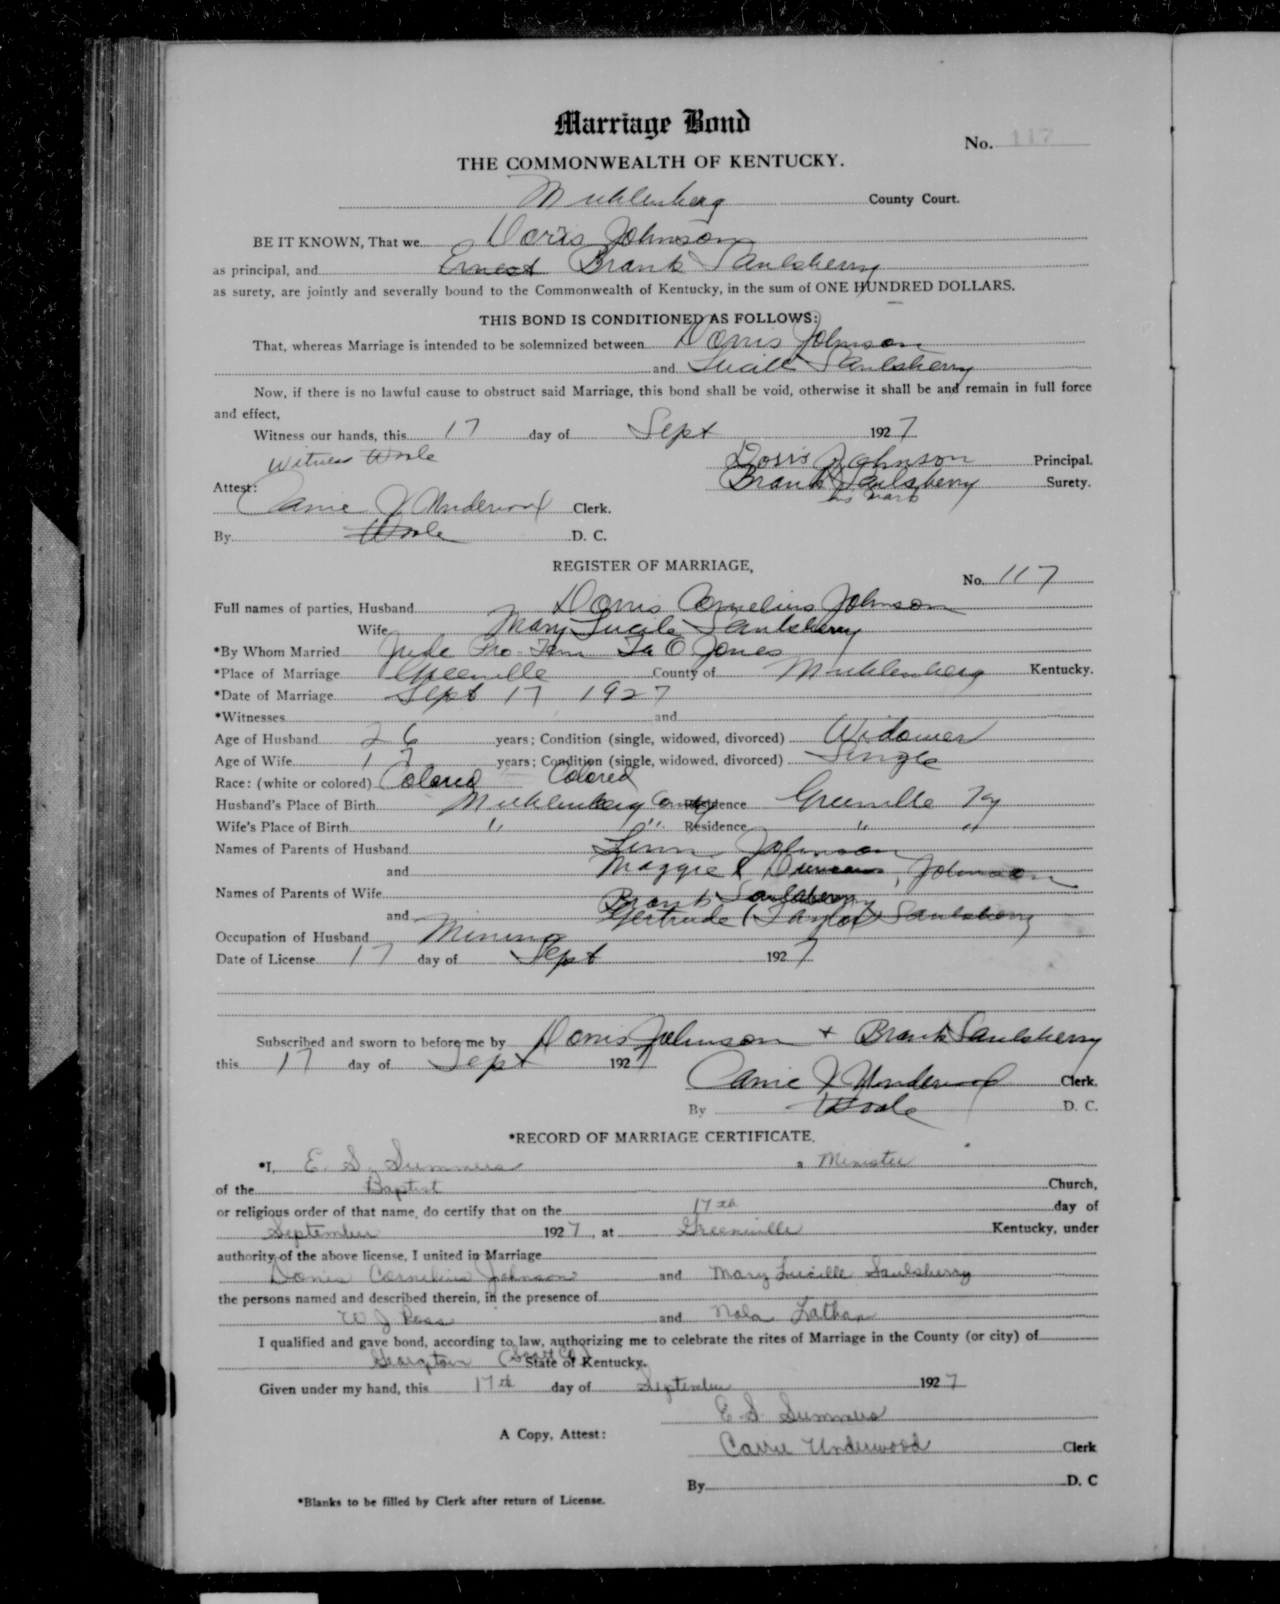 Marriage Bond
No. 117
THE COMMONWEALTH OF KENTUCKY.
Muhlenberg County Court.
BE IT KNOWN, That we Doris Johnson
as principal, and Ernest Brank Saulsberry
as surety, are jointly and severally bound to the Commonwealth of Kentucky, in the sum of ONE HUNDRED DOLLARS.
THIS BOND IS CONDITIONED AS FOLLOWS:
That, whereas Marriage is intended to be solemnized between Dorris Johnson
and Lucile Saulsberry
Now, if there is no lawful cause to obstruct said Marriage, this bond shall be void, otherwise it shall be and remain in full force
and effect,
Witness our hands, this 17 day of Sept 1927
Witness Dorris Johnson Principal.
Attest: Brank Saulsberry Surety.
his mark
Carrie J Underwood Clerk.
By D. C.
REGISTER OF MARRIAGE,
No. 117
Full names of parties, Husband Dorris Cornelius Johnson
Wife Mary Lucile Saulsberry
*By Whom Married Judge Pro-Tem Jones
*Place of Marriage Greenville County of Muhlenberg Kentucky.
*Date of Marriage Sept 17 1927
*Witnesses and
Age of Husband 26 years; Condition (single, widowed, divorced) Widower
Age of Wife 17 years; Condition (single, widowed, divorced) Single
Race: (white or colored) Colored Colored
Husband's Place of Birth Muhlenberg County Residence Greenville Ky
Wife's Place of Birth " " Residence " "
Names of Parents of Husband Johnson
and Maggie Johnson
Names of Parents of Wife Brank Saulsberry
and Gertrude (Taylor) Saulsberry
Occupation of Husband Mining
Date of License 17 day of Sept 1927
Subscribed and sworn to before me by Dorris Johnson + Brank Saulsberry
this 17 day of Sept 1927
Carrie J Underwood Clerk.
By D. C.
*RECORD OF MARRIAGE CERTIFICATE.
*I, E. S. Summers a Minister
of the Baptist Church,
or religious order of that name, do certify that on the 17th day of
September 1927, at Greenville Kentucky, under
authority of the above license, I united in Marriage
Dorris Cornelius Johnson and Mary Lucille Saulsberry
the persons named and described therein, in the presence of
W. J. and Nola Lathan
I qualified and gave bond, according to law, authorizing me to celebrate the rites of Marriage in the County (or city) of
(Scott Co) State of Kentucky.
Given under my hand, this 17th day of September 1927
E. S. Summers
A Copy, Attest:
Carrie Underwood Clerk
By D. C
*Blanks to be filled by Clerk after return of License.